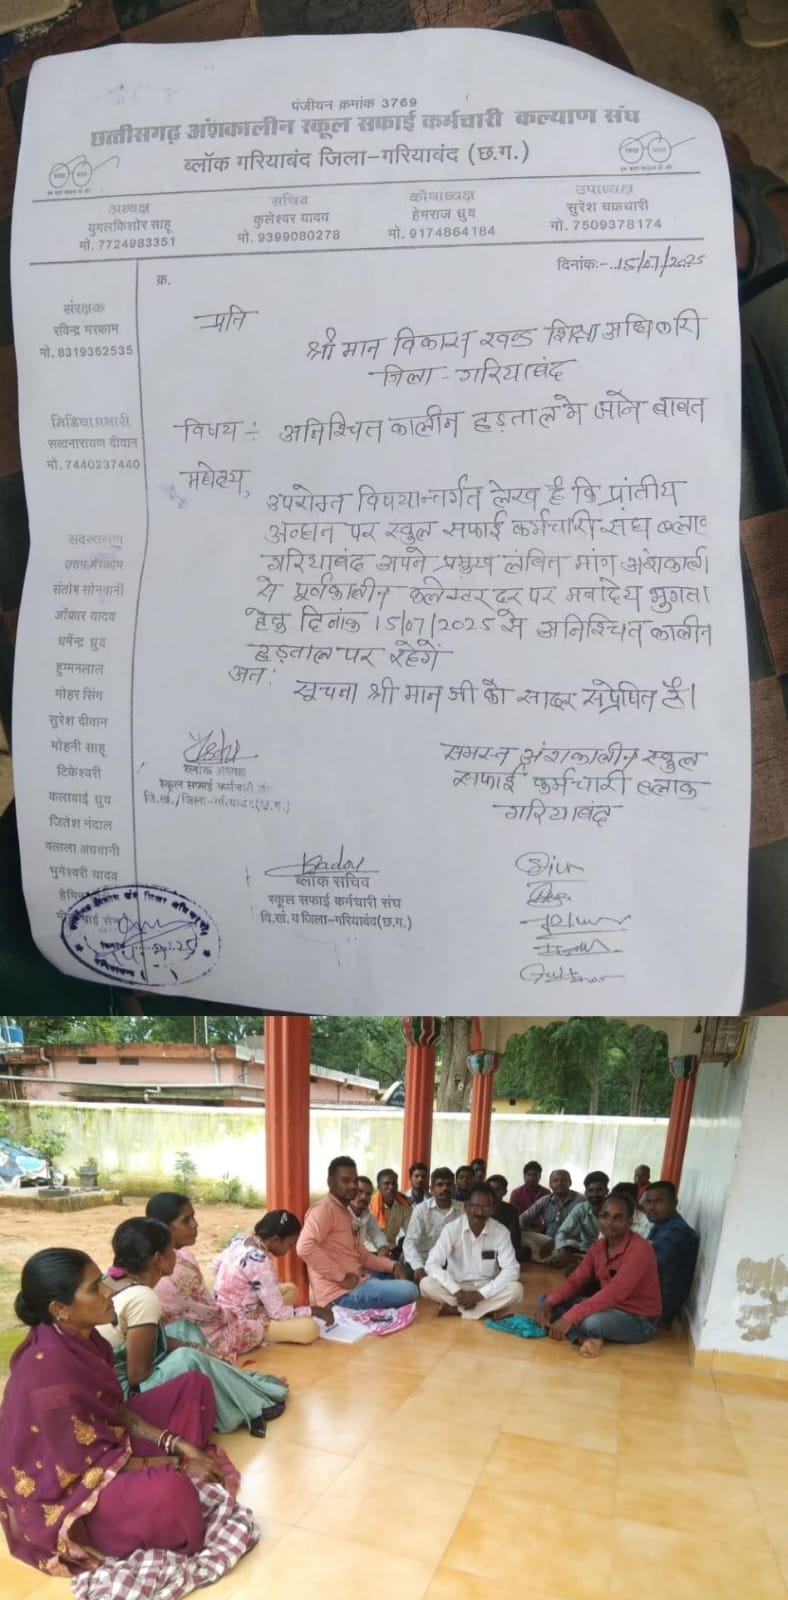 पंजीयन क्रमांक 3769
छत्तीसगढ़ अंशकालीन स्कूल सफाई कर्मचारी कल्याण संघ
ब्लॉक गरियाबंद जिला-गरियाबंद (छ.ग.)
अध्यक्ष
युगलकिशोर साहू
मो. 7724983351
सचिव
कुलेश्वर यादव
मो. 9399080278
कोषाध्यक्ष
हेमराज ध्रुव
मो. 9174864184
उपाध्यक्ष
सुरेश चक्रधारी
मो. 7509378174
क्र.
दिनांक:-..15/07/2025
संरक्षक
रविन्द्र मरकाम
मो. 8319362535
मिडिया प्रभारी
सत्यनारायण दीवान
मो. 7440237440
सदस्यगण
उत्तम मरकाम
संतोष सोनवानी
ओंकार यादव
धर्मेन्द्र ध्रुव
हुम्मनलाल
मोहर सिंग
सुरेश दीवान
मोहनी साहू
टिकेश्वरी
कलाबाई ध्रुव
जितेश नंदाल
वत्सला अघवानी
भुनेश्वरी यादव
प्रति
श्री मान विकास खण्ड शिक्षा अधिकारी
जिला - गरियाबंद
विषय :- अनिश्चित कालीन हड़ताल मे जाने बाबत
महोदय,
उपरोक्त विषयान्तर्गत लेख है कि प्रांतीय
पर स्कूल सफाई कर्मचारी संघ
गरियाबंद अपने प्रमुख लंबित मांग
से पूर्णकालीन कलेक्टर दर पर मनादेय भुगता
हेतु दिनांक 15/07/2025 से अनिश्चित कालीन
हड़ताल पर रहेगें
अतः
सूचना श्री मान जी को सादर संप्रेषित है।
समस्त अंशकालीन स्कूल
सफाई कर्मचारी ब्लाक
गरियाबंद
ब्लॉक अध्यक्ष
स्कूल सफाई कर्मचारी संघ
वि.खं./जिला-गरियाबंद(छ.ग.)
ब्लॉक सचिव
स्कूल सफाई कर्मचारी संघ
वि.खं. व जिला-गरियाबंद(छ.ग.)